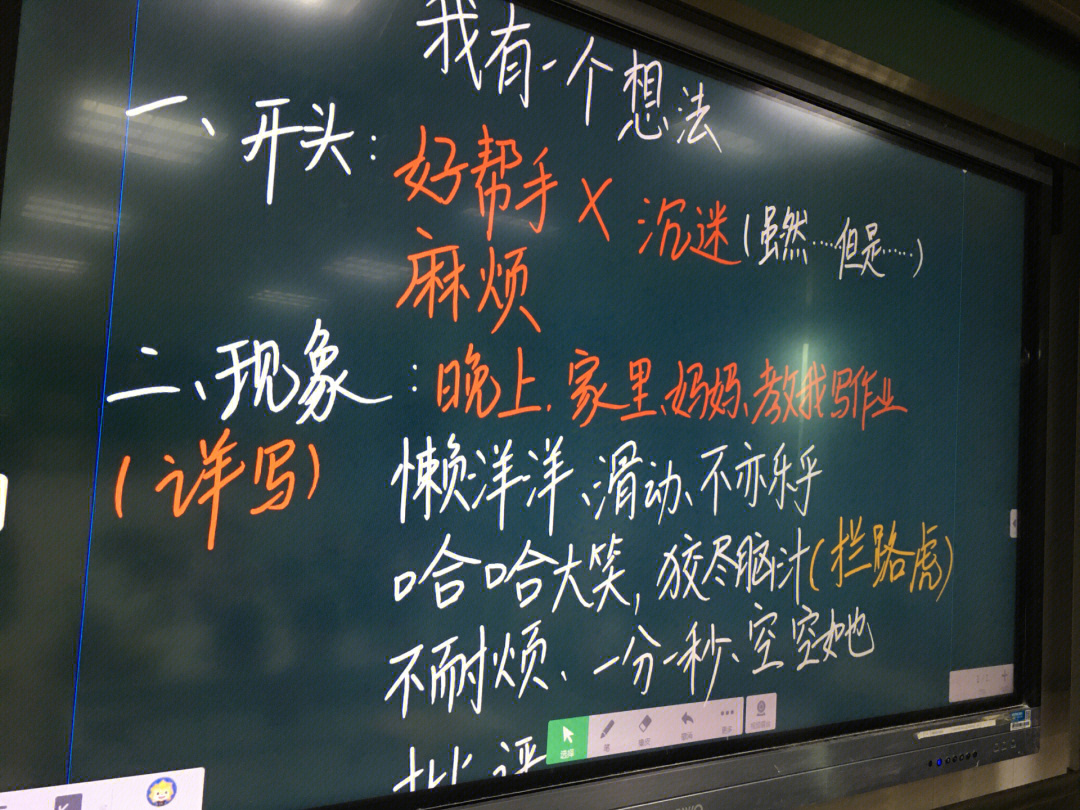 我有一个想法
一、开头：好帮手 X 沉迷（虽然……但是……）
麻烦
二、现象：晚上、家里、妈妈、教我写作业
（详写）懒洋洋、滑动、不亦乐乎
哈哈大笑，狡尽脑汁（拦路虎）
不耐烦、一分一秒、空空如也
批评
选择 笔